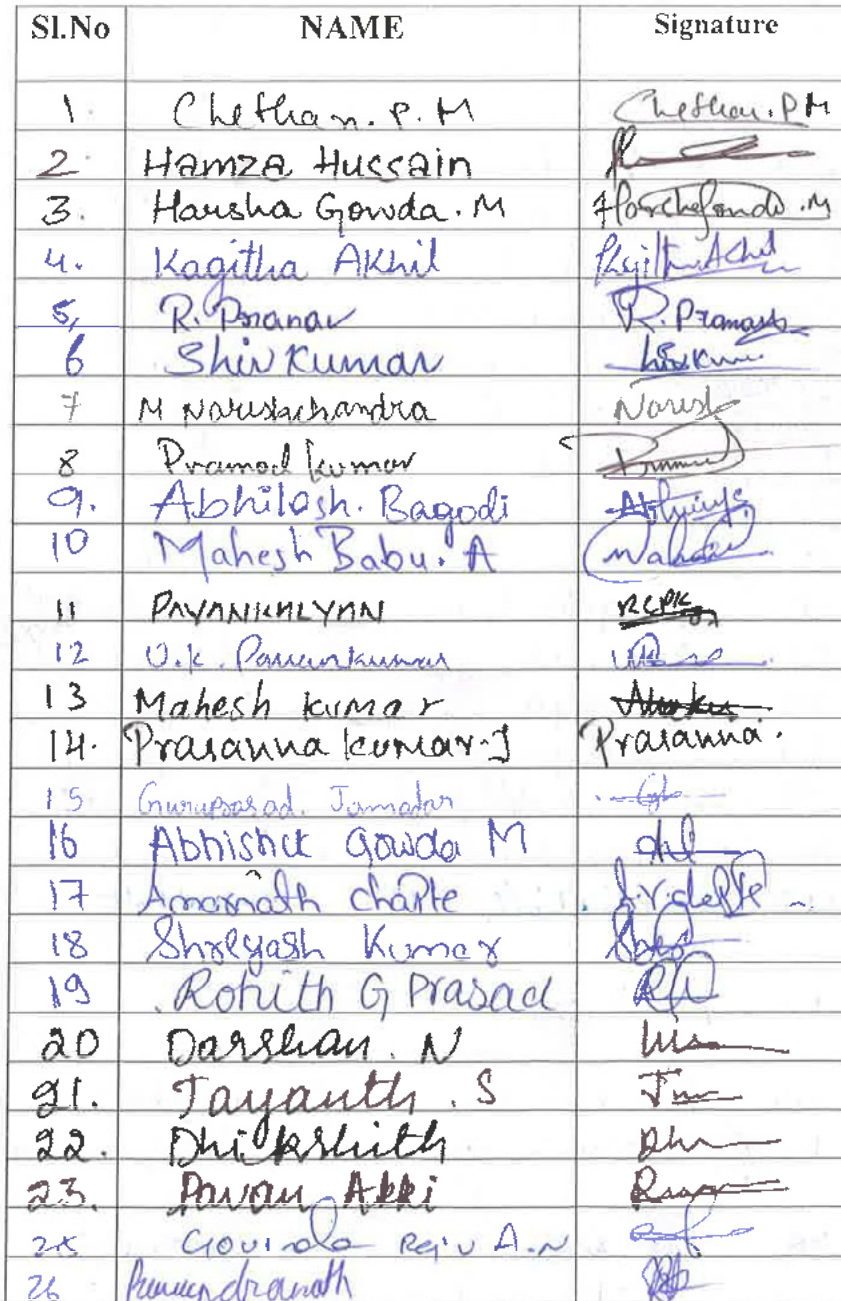 Sl.No NAME Signature
1. Chethan. P. M Chethan. P M
2. Hamza Hussain
3. Harsha Gowda. M
4. Kagitha Akhil
5, R. Pranav R. Pranav
6 Shiv Kumar
7 M Nareshchandra Naresh
8 Pramod Kumar
9. Abhilash. Bagodi
10 Mahesh Babu. A
11 PAVANKALYAN RCPK
12 U.K. Pavankumar
13 Mahesh kumar
14. Prasanna kumar.J Prasanna.
15 Guruprasad. Jamadar
16 Abhishek Gowda M
17 Amarnath chapte
18 Shreyash Kumar
19 Rohith G Prasad
20 Darshan. N
21. Jayanth. S
22. Dhickshith
23. Pavan Akki
25 Govinda Raju A.N
26